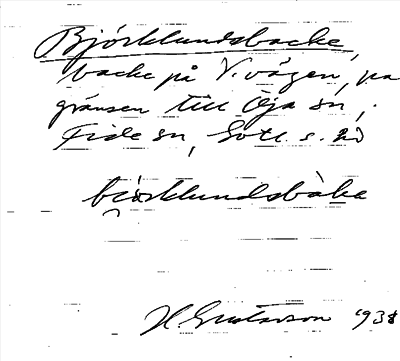 Björklundsbacke,
backe på V.vägen, på
gränsen till Öja sn,
Fide sn, Gotl. s. hd
björklundsbàka
H. Gustavson 1938